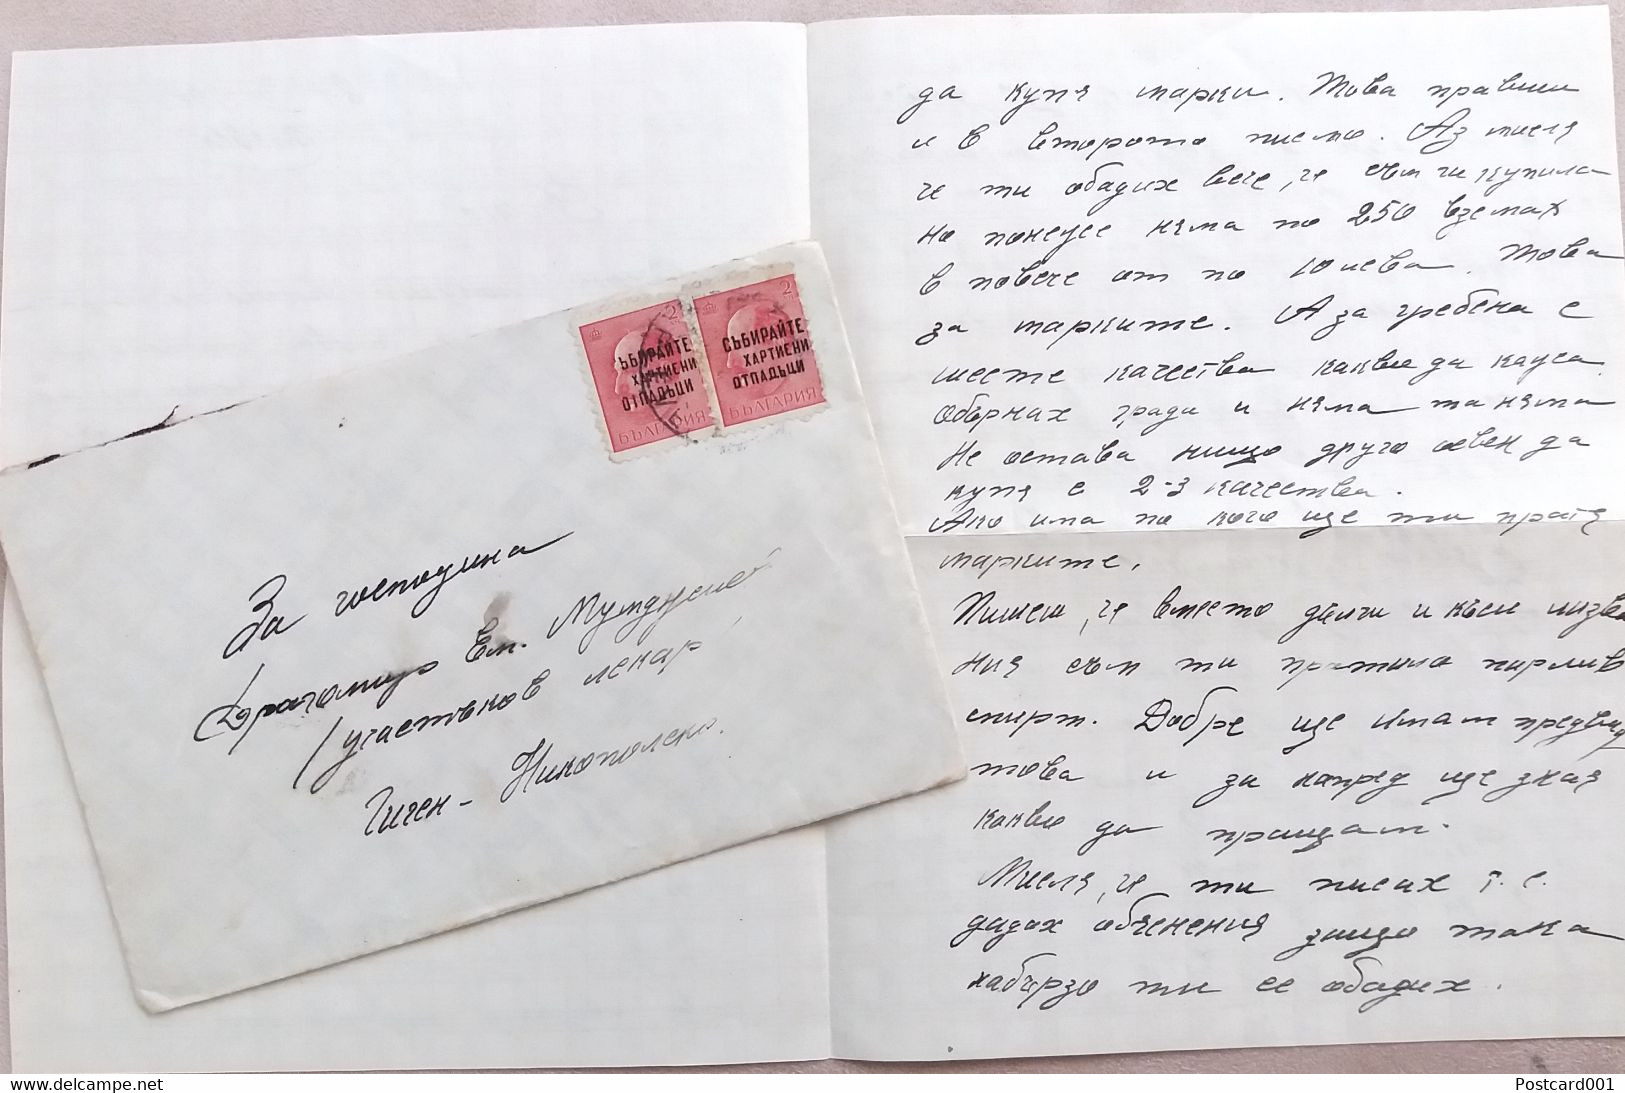 2
СЪБИРАЙТЕ
ХАРТИЕНИ
ОТПАДЪЦИ
БЪЛГАРИЯ
2
СЪБИРАЙТЕ
ХАРТИЕНИ
ОТПАДЪЦИ
БЪЛГАРИЯ
За господина
Драгомир Ем.
/участъков лекар/
Гиген - Никополско.
да купя марки. Това правиш
и в второто писмо. Аз мисля
че ти обадих вече, че съм ги купила
но понеже няма по 250 вземах
в повече от по 10 лева. Това
за марките. А за гребена с
шест качества какво да кажа
обърнах града и няма та няма
Не остава нищо друго освен да
купя с 2-3 качества.
Ако има по кого ще ти пратя
марките.
Пишеш, че вместо дълги и къси
ния съм ти пратила
спирт. Добре ще имам предвид
това и за напред ще зная
какво да пращам.
Мисля, че ти писах т.е.
дадох обяснения защо така
набързо ти се обадих.
Postcard001
www.delcampe.net